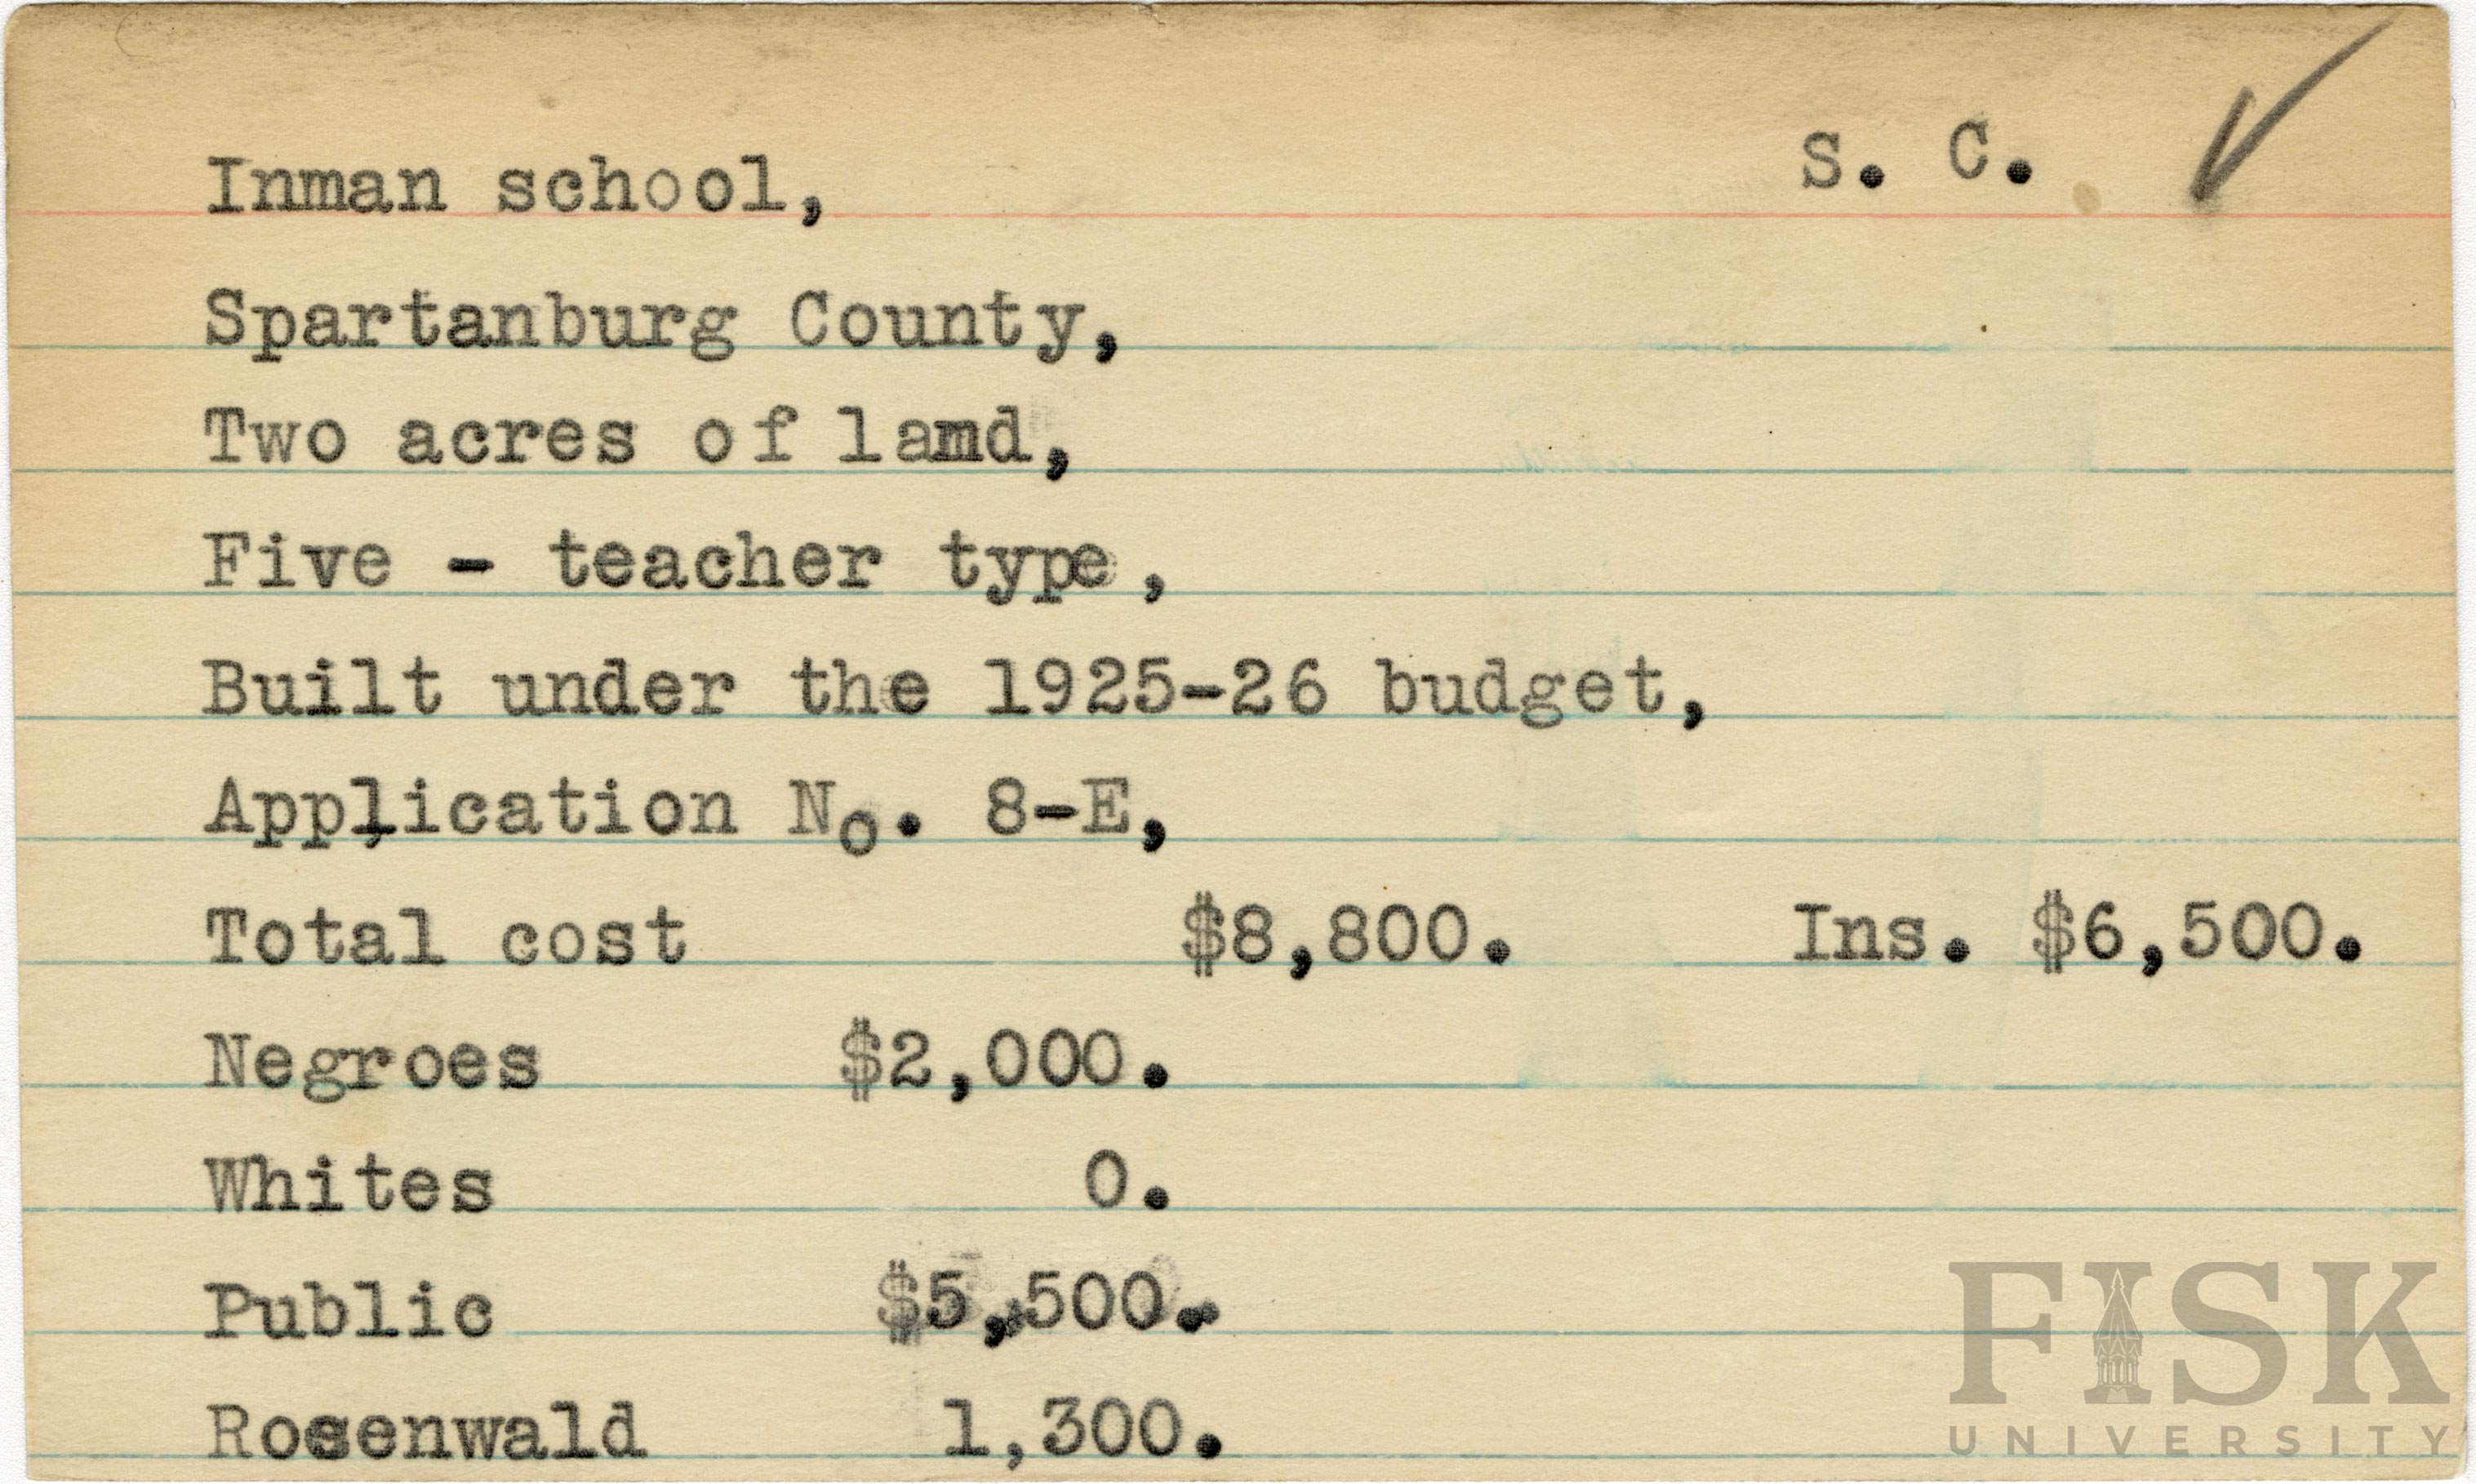 Inman school, S. C.
Spartanburg County,
Two acres of land,
Five - teacher type,
Built under the 1925-26 budget,
Application No. 8-E,
Total cost $8,800. Ins. $6,500.
Negroes $2,000.
Whites 0.
Public $5,500.
Rosenwald 1,300.
FISK
UNIVERSITY